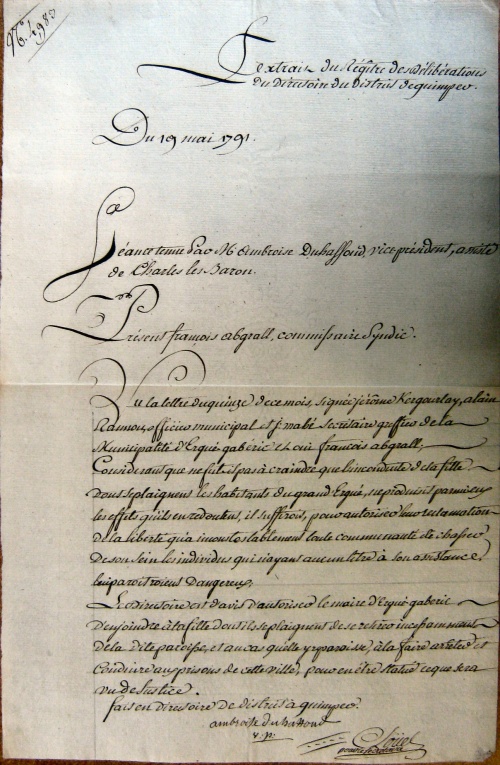 Extrait du Régître des délibérations
du Directoire du District de quimper.
Du 19 mai 1791.
Séance tenue Par M Ambroise Duhaffond, vice-président, assisté
de Charles les Barou.
Présent françois abgrall, commissaire Syndic.
Vu la lettre du quinze de ce mois, signée jérôme Kergourlay, alain
Rannou, officiers municipal et j mahé secrétaire greffier de la
Municipalité d'Ergué-gaberic et oui françois abgrall,
Considerant que ne fut il pas à craindre que l'inconduite de la fille
Dont se plaignent les habitants du grand Ergué, ne produisit parmi eux
les effets qu'ils en redoutent, il suffiroit, pour autoriser leur reclamation
de la liberté qu'a incontestablement toute communauté de chasser
De son sein les individus qui n'ayant aucun titre à son assistance
lui paroitroient Dangereux;
Le directoire est d'avis d'autoriser le maire d'Ergué gaberic
D'enjoindre à la fille dont ils se plaignent de se retirer incessamment
de la Dite paroisse, et au cas qu'elle y reparoisse, à la faire arreter et
Conduire aux prisons de cette ville, pour en être statué ce que sera
vu de Justice.
fait en directoire de district à quimper.
ambroise du haffond
v. p.